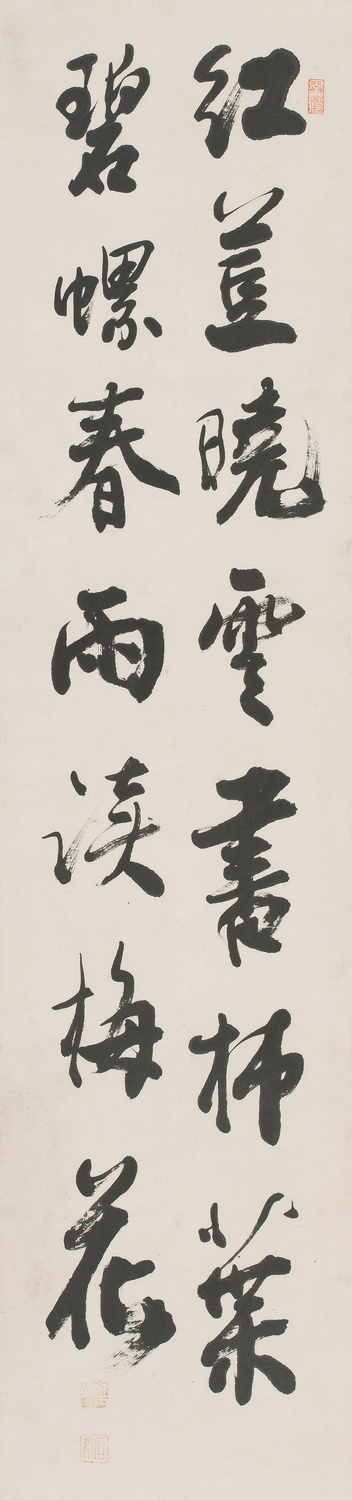 紅荳曉雲書柿葉
碧螺春雨談梅花